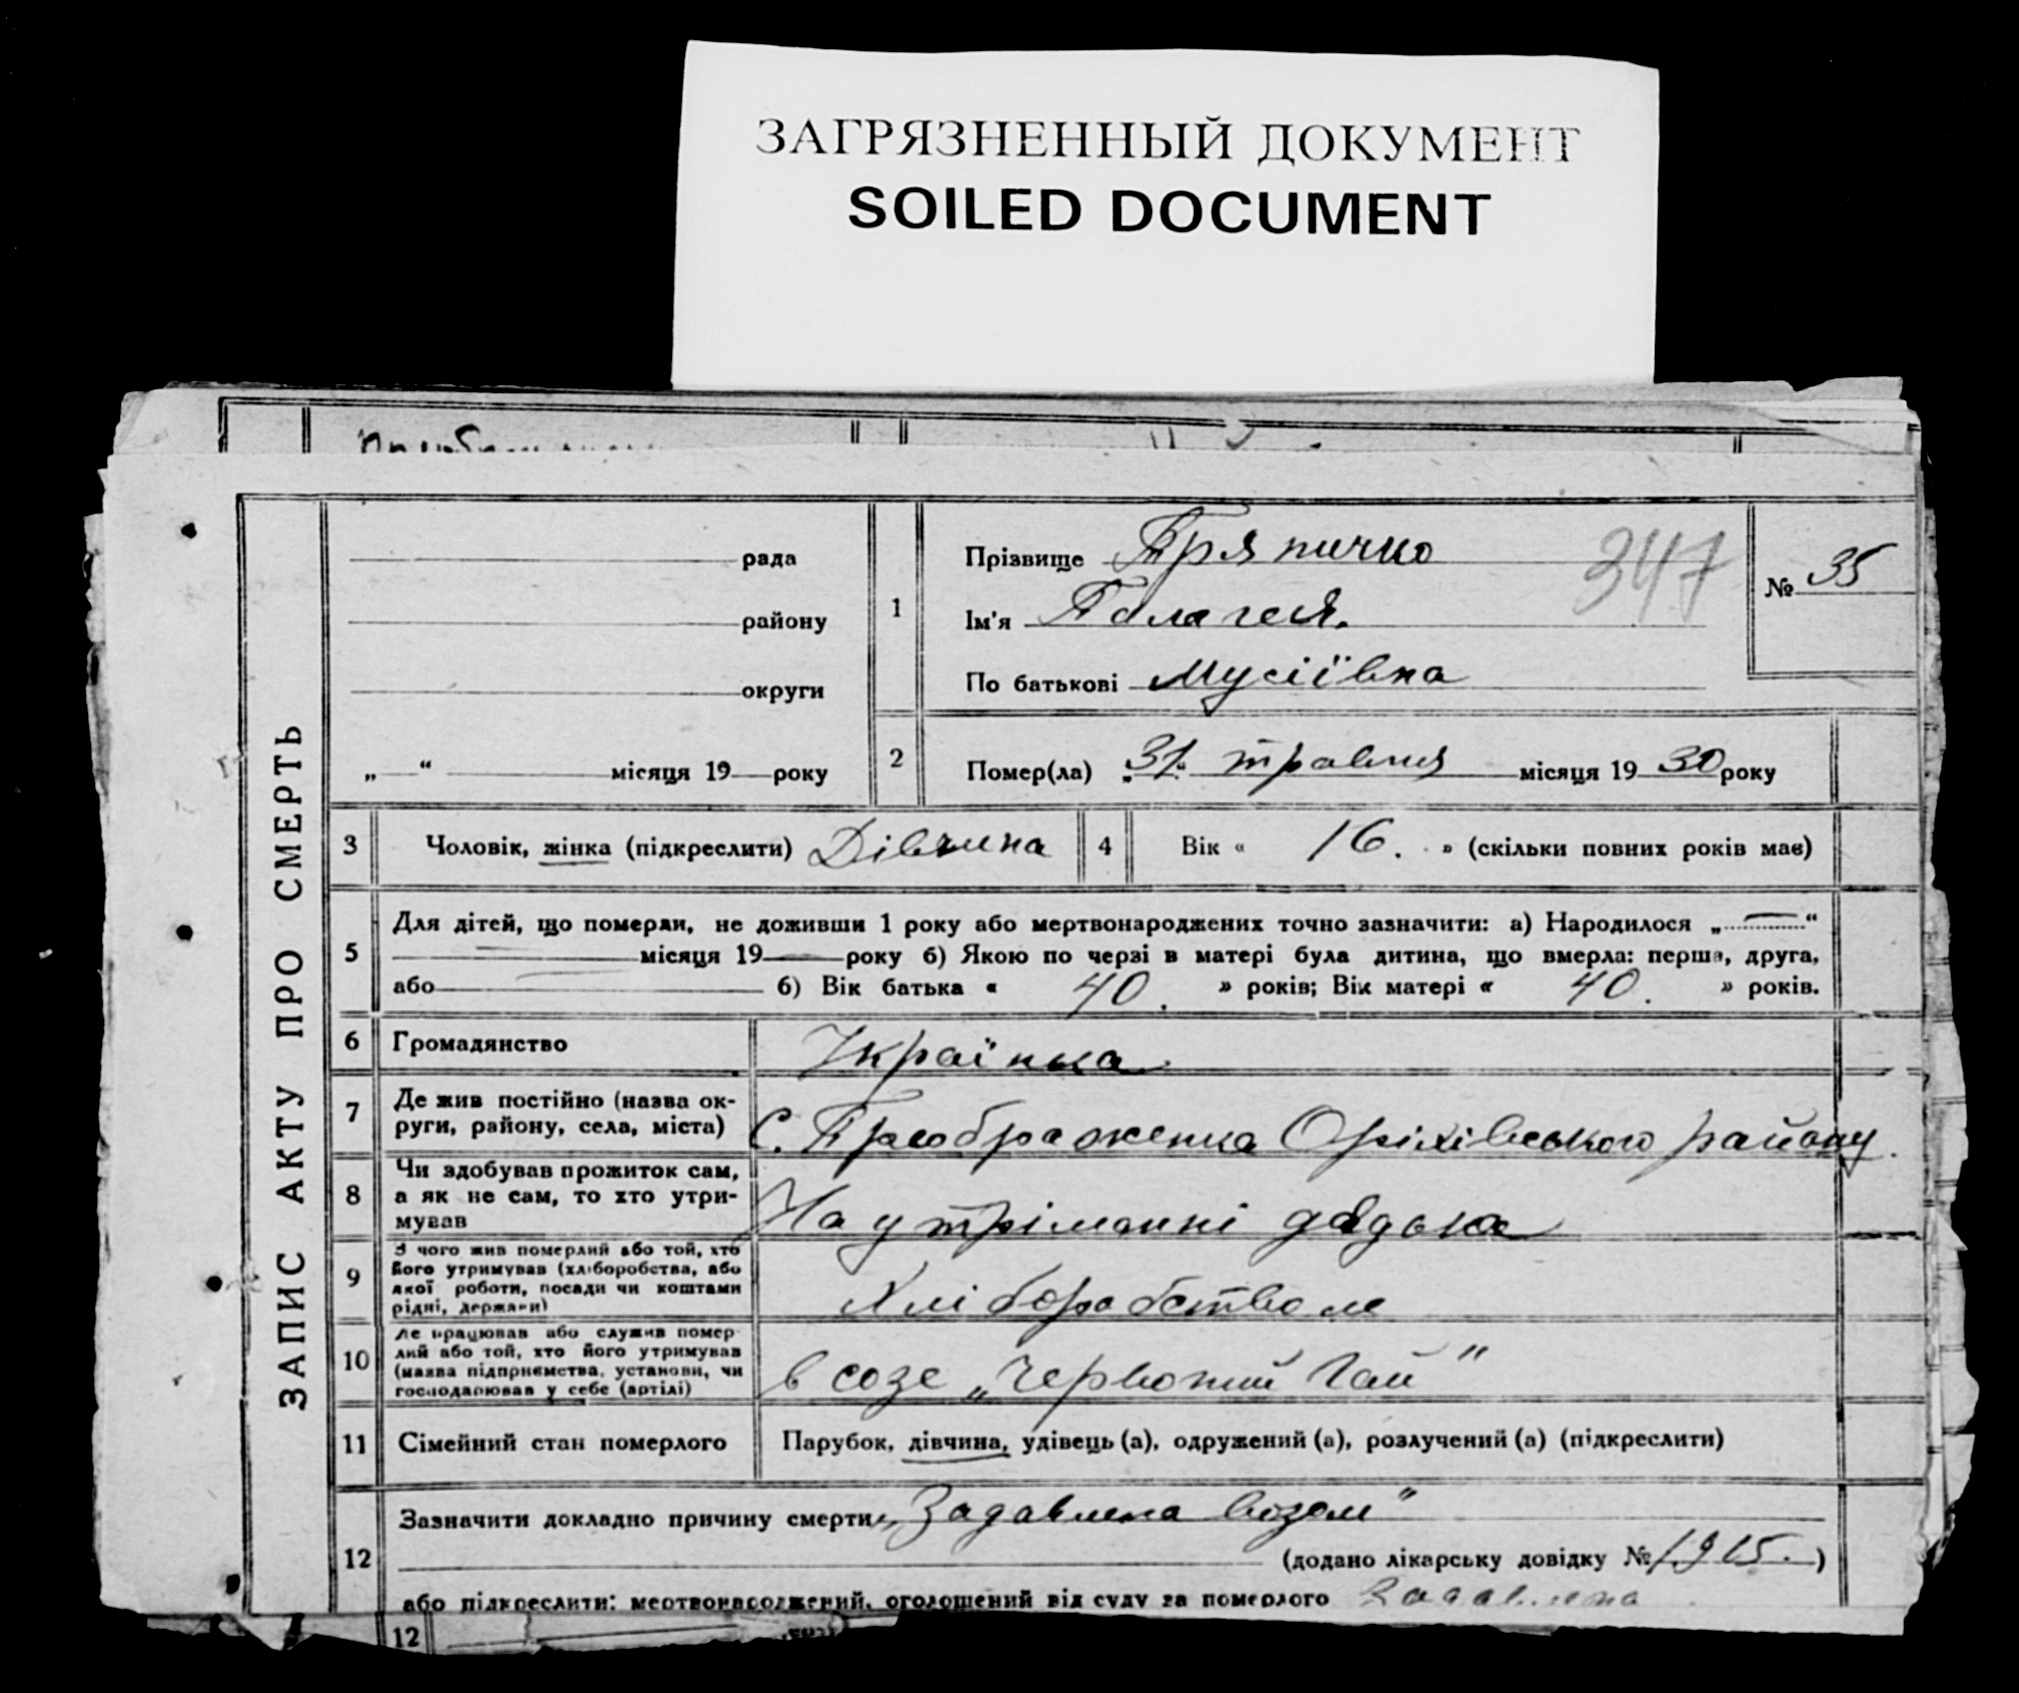 ЗАГРЯЗНЕННЫЙ ДОКУМЕНТ
SOILED DOCUMENT
ЗАПИС АКТУ ПРО СМЕРТЬ
рада
району
округи
„ “ місяця 19 року
1
Прізвище Тряпичко
Ім'я Палагея.
По батькові Мусіївна
347
№ 35
2
Помер(ла) „31“ травня місяця 19 30 року
3 Чоловік, жінка (підкреслити) Дівчина
4 Вік « 16. » (скільки повних років має)
5 Для дітей, що померли, не доживши 1 року або мертвонароджених точно зазначити: а) Народилося „—“
місяця 19 — року б) Якою по черзі в матері була дитина, що вмерла: перша, друга,
або б) Вік батька « 40. » років; Вік матері « 40. » років.
6 Громадянство Українка
7 Де жив постійно (назва ок-
руги, району, села, міста) С. Преображенка Оріхівського району.
8 Чи здобував прожиток сам,
а як не сам, то хто утри-
мував На утріманні дядька
9 З чого жив померлий або той, хто
його утримував (хліборобства, або
якої роботи, посади чи коштами
рідні, держави) Хліборобством
10 Де працював або служив помер-
лий або той, хто його утримував
(назва підприємства, установи, чи
господарював у себе (артілі) в созе „Червоний Гай“
11 Сімейний стан померлого Парубок, дівчина, удівець (а), одружений (а), розлучений (а) (підкреслити)
12 Зазначити докладно причину смерти „Задавлена возом“
(додано лікарську довідку № 1915.)
або підкреслити: мертвонароджений, оголошений від суду за померлого Задавлена
12